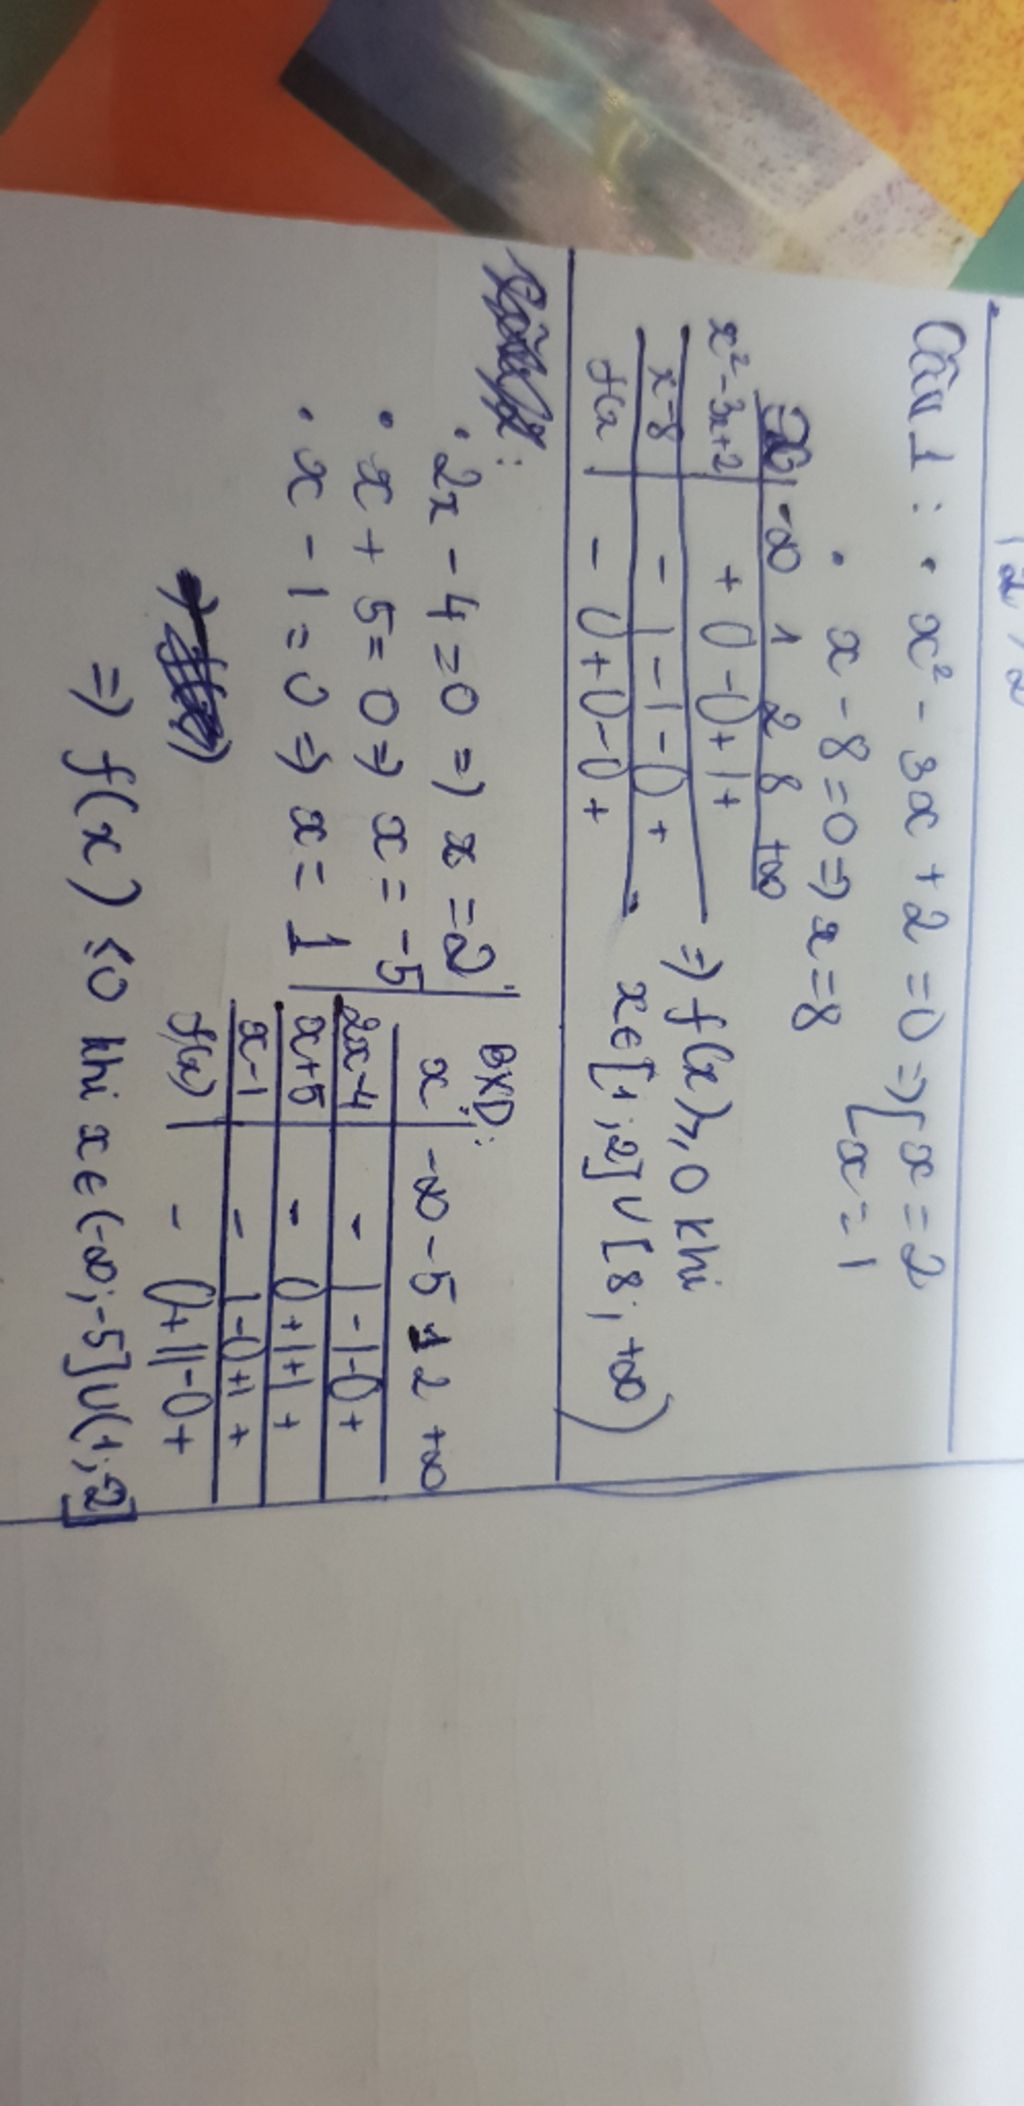 Câu 1 : • x² - 3x + 2 = 0 => [ x = 2
x = 1
• x - 8 = 0 => x = 8
x -∞ 1 2 8 +∞
x² - 3x + 2 + 0 - 0 + | +
x - 8 - | - | - 0 +
f(x - 0 + 0 - 0 +
=> f(x) ≥ 0 khi
x ∈ [1 ; 2] ∪ [8 ; +∞)
• 2x - 4 = 0 => x = 2
• x + 5 = 0 => x = -5
• x - 1 = 0 => x = 1
BXD:
x -∞ -5 1 2 +∞
2x - 4 - | - | - 0 +
x + 5 - 0 + | + | +
x - 1 - | - 0 + | +
f(x) - 0 + || - 0 +
=> f(x) ≤ 0 khi x ∈ (-∞; -5] ∪ (1; 2]